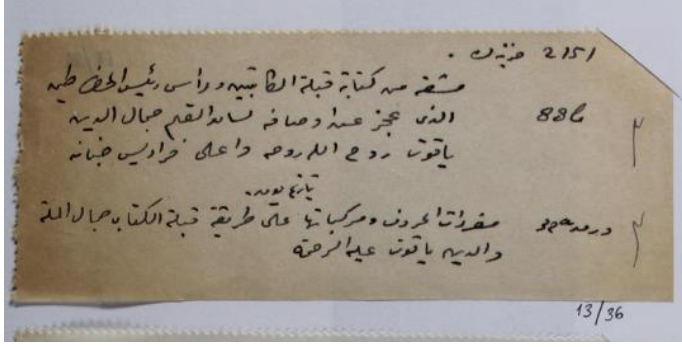 2151 خزينه .
مشقه من كتابة قبلة الكاتبين ورأس رئيس الخطاطين
الذى عجز عن اوصافه لسان القلم جمال الدين
ياقوت روح الله روحه واعلى فراديس جنانه
تاريخ يوق.
مفردات الحروف ومركباتها على طريقة قبلة الكتاب جمال الملة
والدين ياقوت عليه الرحمة
13/36